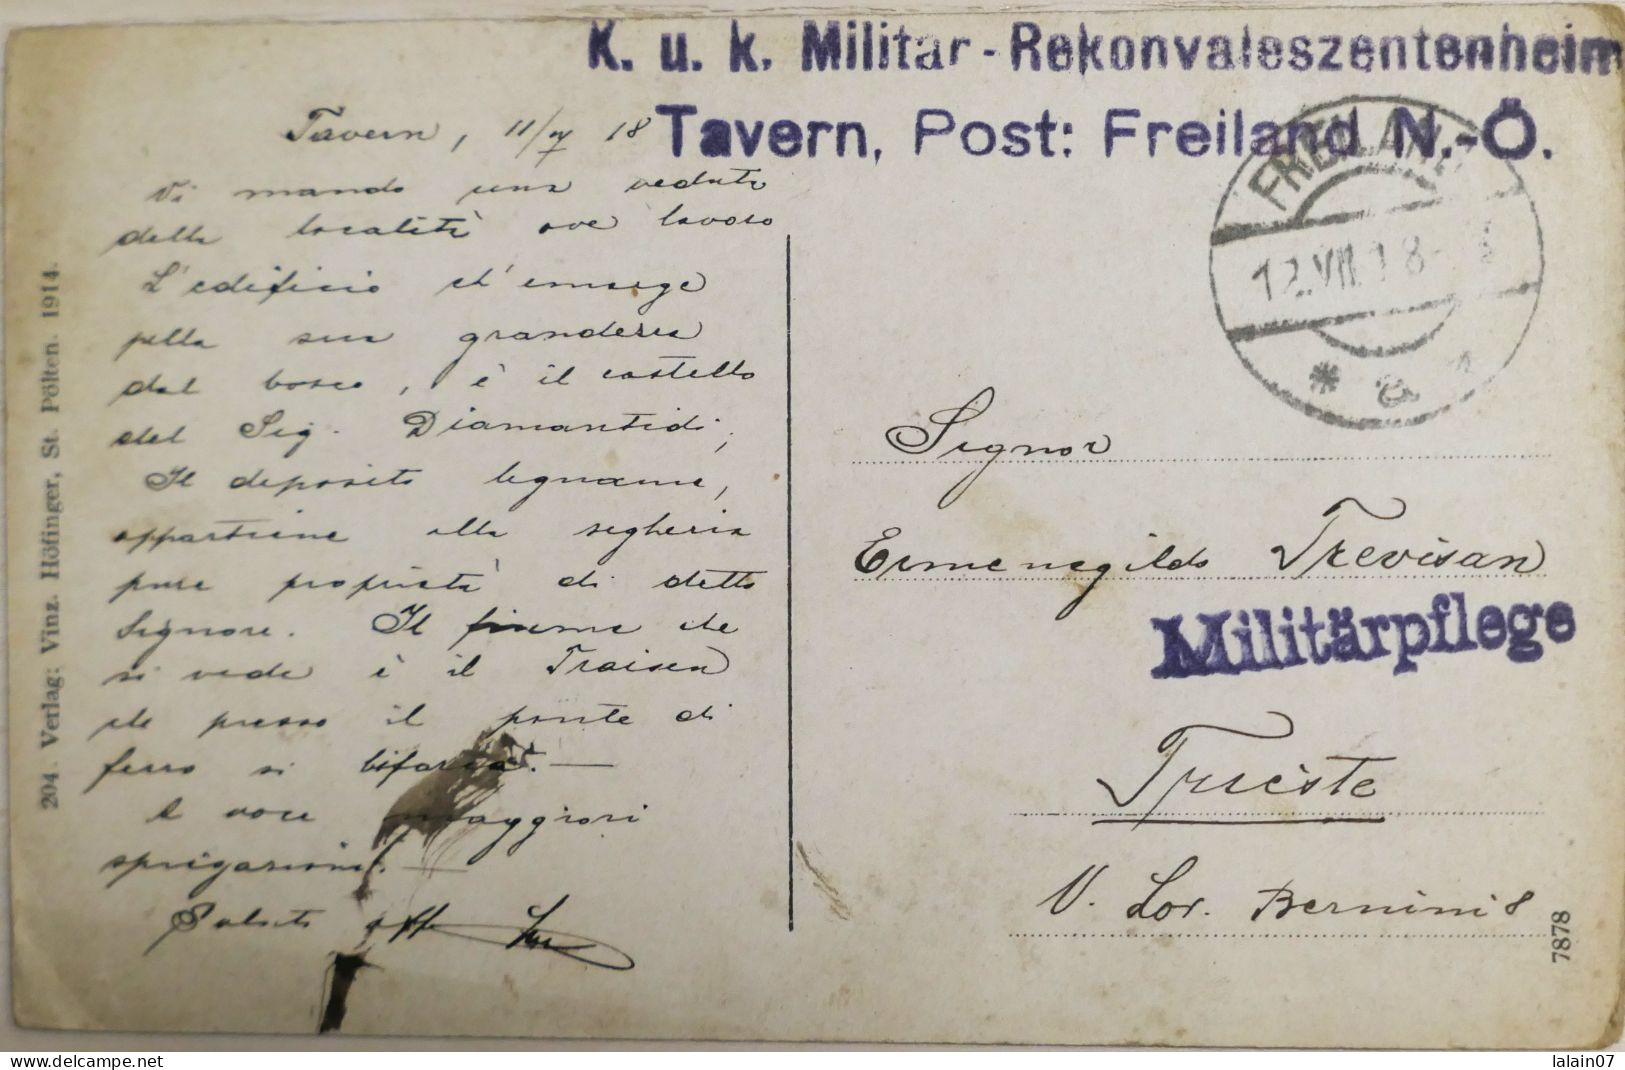 K. u. k. Militär-Rekonvaleszentenheim
Tavern, Post: Freiland N.-Ö.
FREILAND
12.VII.18
Tavern, 11/7 18
Vi mando una veduta
della località ove lavoro
L'edificio ch'emerge
pella sua grandezza
dal bosco, è il castello
del Sig. Diamantidi;
Il deposito legname,
appartiene alla segheria
pure proprietà di detto
Signore. Il fiume che
si vede è il Traisen
che presso il ponte di
ferro si biforca. —
A voce maggiori
spiegazioni. —
Saluti aff
Signor
Ermenegildo Trevisan
Militärpflege
Trieste
V. Lor. Bernini 8
204. Verlag: Vinz. Höfinger, St. Pölten. 1914.
7878
delcampe.net
lalain07